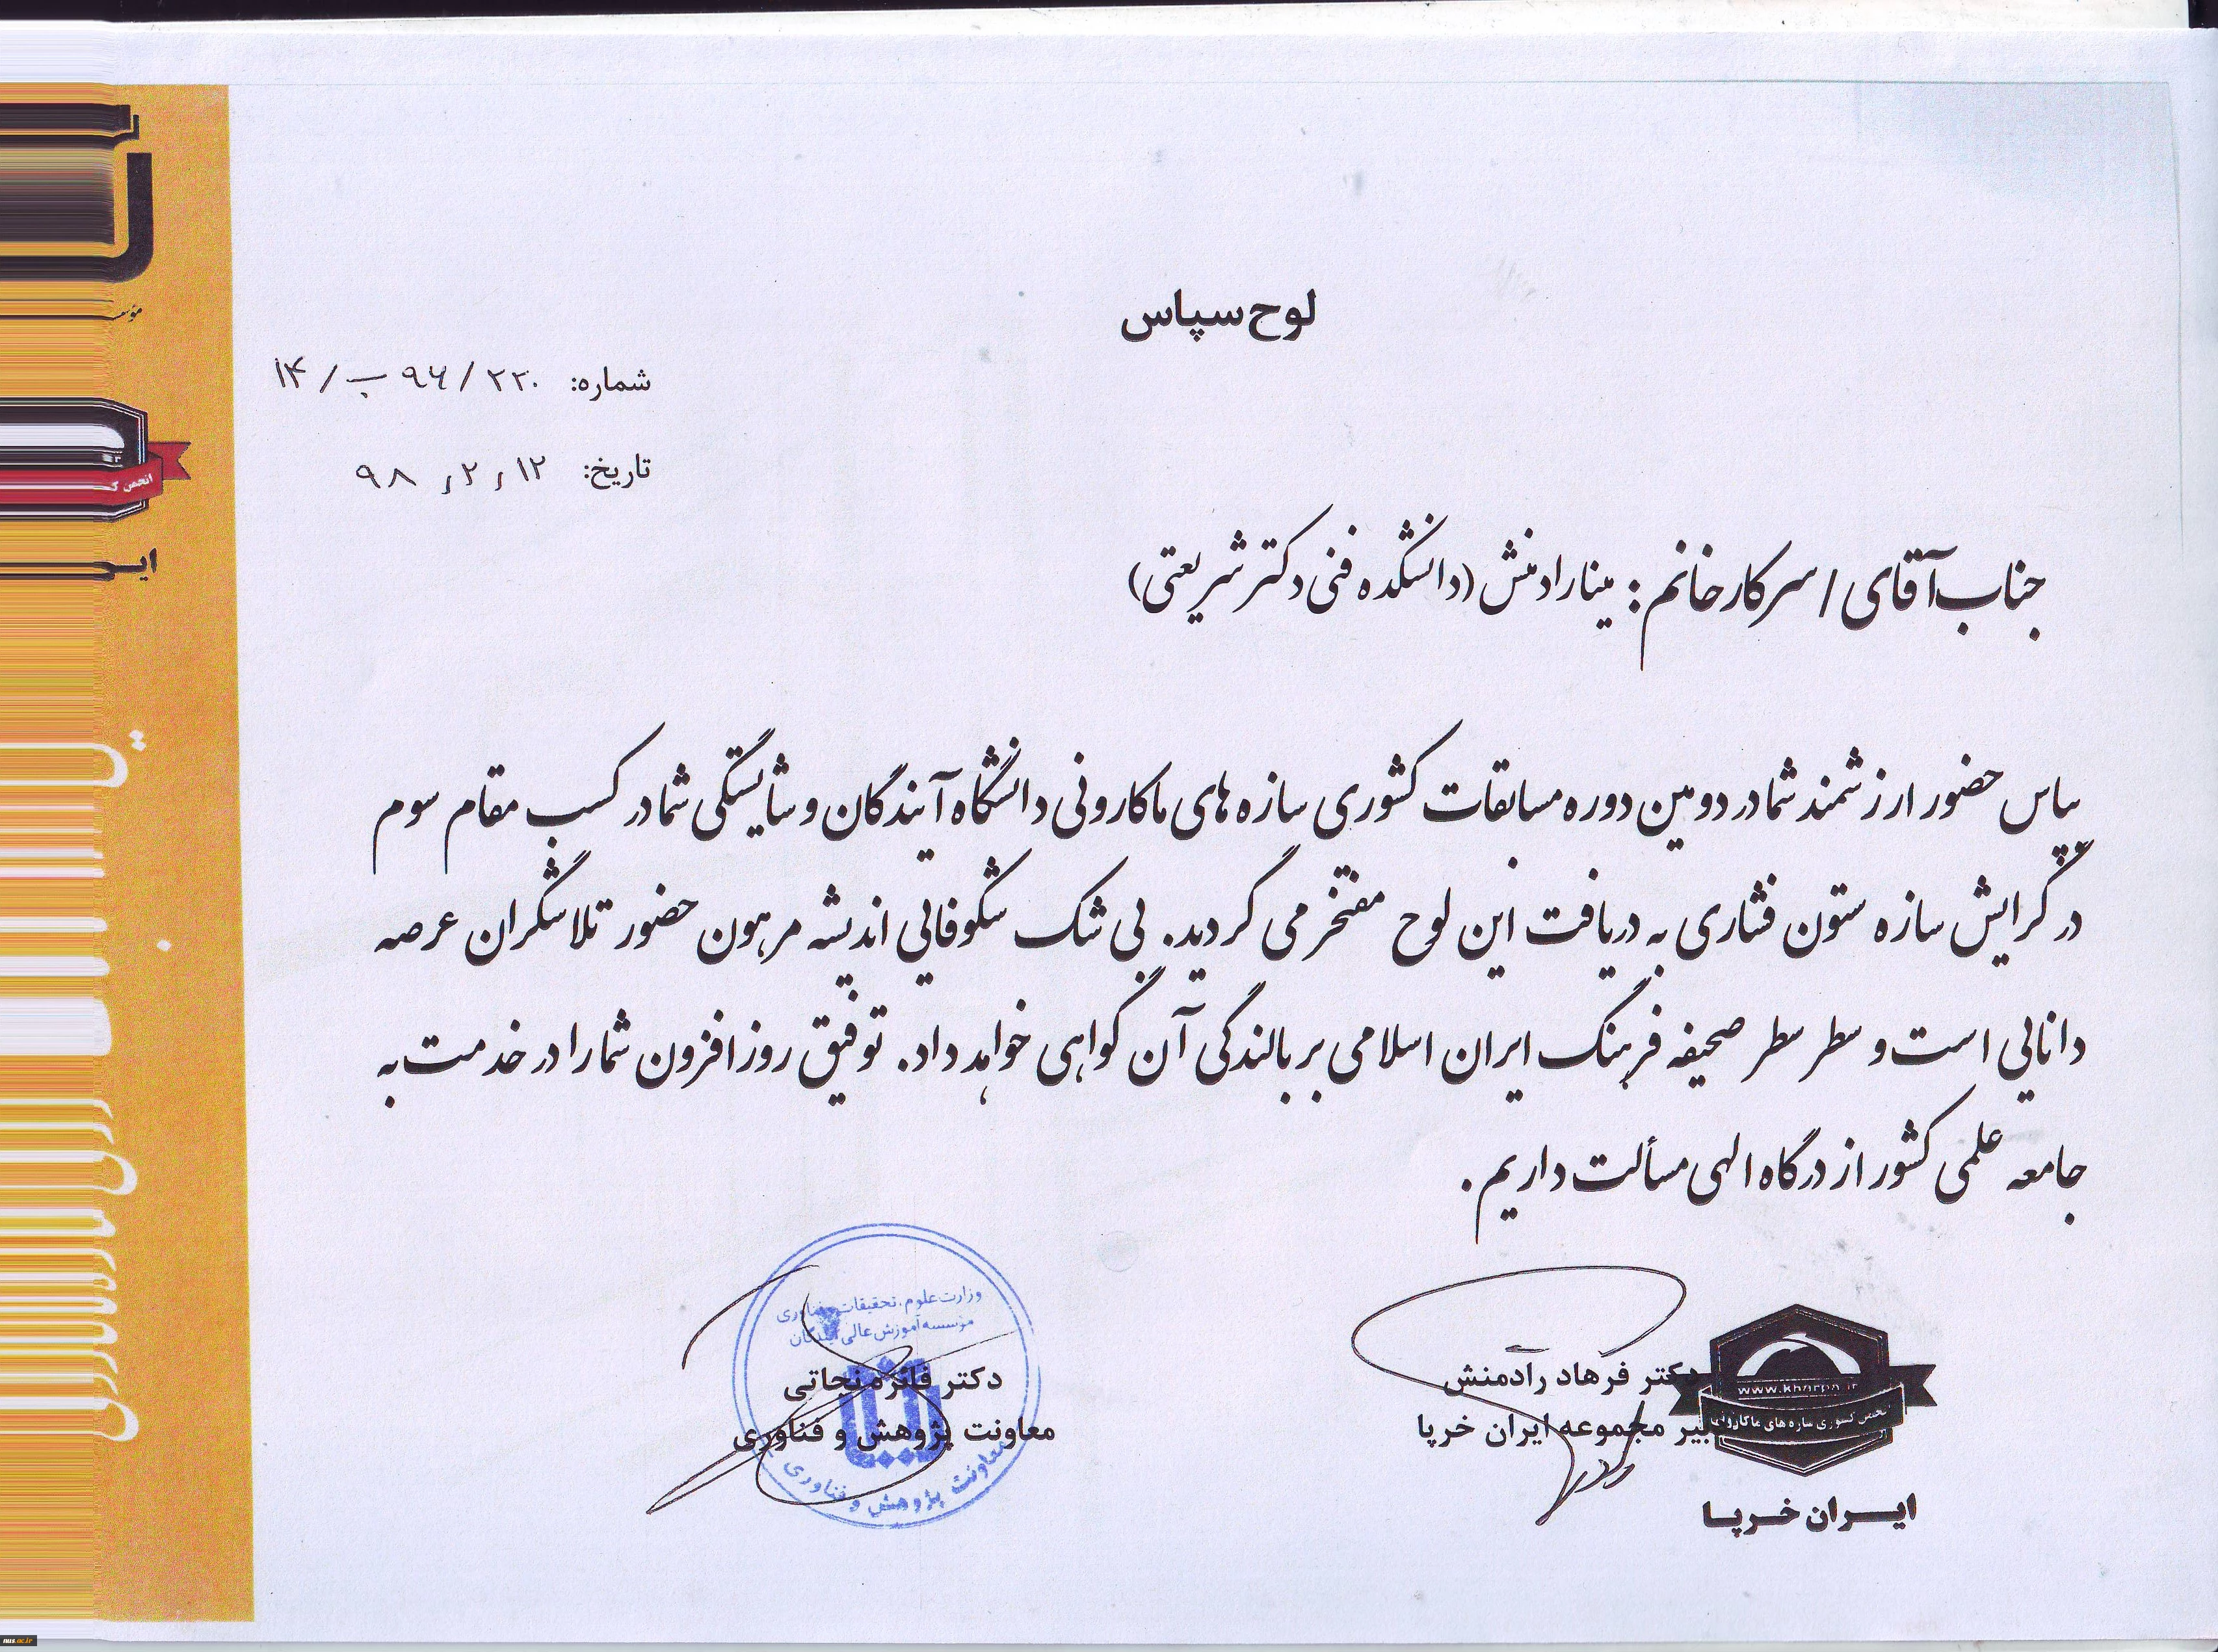 لوح سپاس
شماره: ۱۴/ب ۹۶/۲۲۰
تاریخ: ۹۸,۲,۱۲
جناب آقای / سرکار خانم : مینا رادمنش (دانشکده فنی دکتر شریعتی)
بپاس حضور ارزشمند شما در دومین دوره مسابقات کشوری سازه های ماکارونی دانشگاه آیندگان و شایستگی شما در کسب مقام سوم
در گرایش سازه ستون فشاری به دریافت این لوح مفتخر می گردید. بی شک شکوفایی اندیشه مرهون حضور تلاشگران عرصه
دانایی است و سطر سطر صحیفه فرهنگ ایران اسلامی بر بالندگی آن گواهی خواهد داد. توفیق روزافزون شما را در خدمت به
جامعه علمی کشور از درگاه الهی مسألت داریم.
دکتر فرهاد رادمنش
بیر مجموعه ایران خرپا
www.kharpa.ir
انجمن کشوری سازه های ماکارونی
ایران خرپا
وزارت علوم، تحقیقات و فناوری
مؤسسه آموزش عالی آیندگان
دکتر فائزه نجاتی
معاونت پژوهش و فناوری
معاونت پژوهش و فناوری
nus.ac.ir